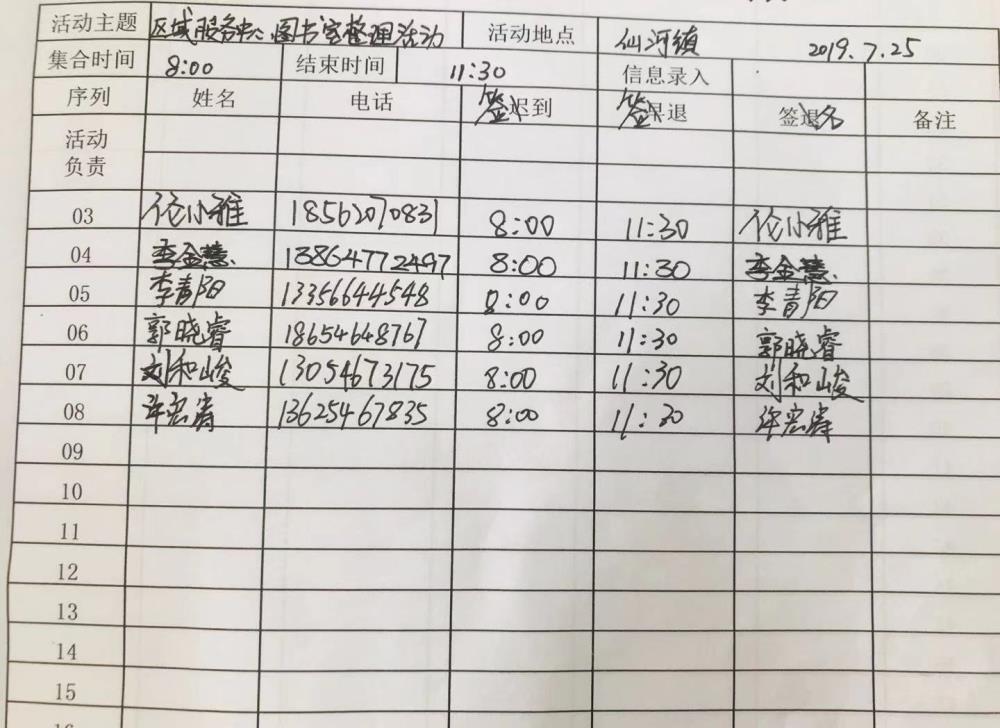 活动主题 区域服务中心图书室整理活动 活动地点 仙河镇 2019.7.25
集合时间 8:00 结束时间 11:30 信息录入
序列 姓名 电话 签迟到 签早退 签退名 备注
活动
负责
03 伦小雅 18562070831 8:00 11:30 伦小雅
04 李金慧 13864772497 8:00 11:30 李金慧
05 李青阳 13356644548 8:00 11:30 李青阳
06 郭晓睿 18654648767 8:00 11:30 郭晓睿
07 刘和峻 13054673175 8:00 11:30 刘和峻
08 许宏涛 13625467835 8:00 11:30 许宏涛
09
10
11
12
13
14
15